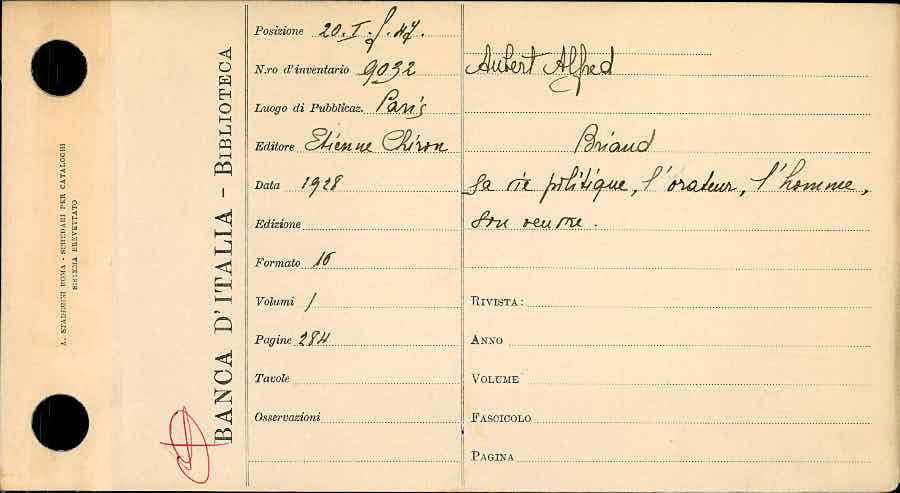 A. STADERINI ROMA - SCHEDARI PER CATALOGHI
SISTEMA BREVETTATO
BANCA D'ITALIA - BIBLIOTECA
Posizione 20. I. f. 47.
N.ro d'inventario 9032
Luogo di Pubblicaz. Paris
Editore Etienne Chiron
Data 1928
Edizione
Formato 16
Volumi 1
Pagine 284
Tavole
Osservazioni
Aubert Alfred
Briand
Sa vie politique, l'orateur, l'homme,
son oeuvre.
RIVISTA:
ANNO
VOLUME
FASCICOLO
PAGINA